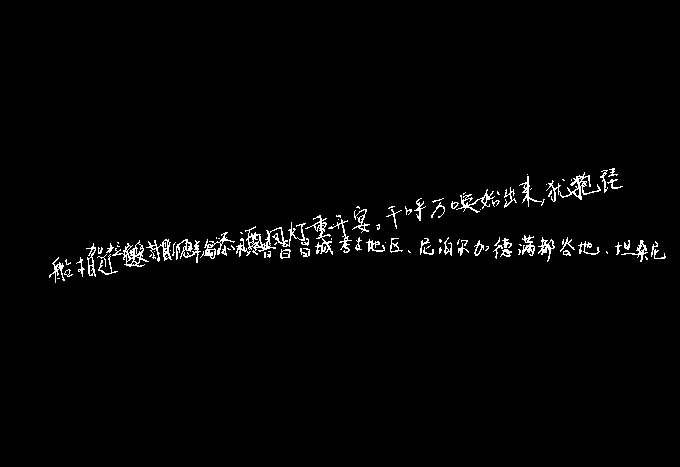 船相近邀相见,添酒回灯重开宴。千呼万唤始出来,犹抱
昌昌城考古地区、尼泊尔加德满都谷地、坦桑尼